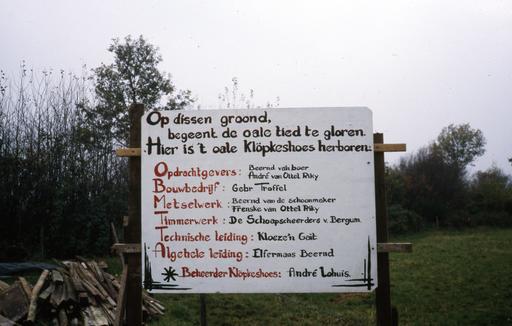 Op dissen groond,
begeent de oale tied te gloren.
Hier is 't oale Klöpkeshoes herboren.
Opdrachtgevers: Beernd van boer
André van Ottel Riky
Bouwbedrijf: Gebr Troffel
Metselwerk: Beernd van de schoonmaker
Frenske van Ottel Riky
Timmerwerk: De Schoapscheerders v. Bergum.
Technische leiding: Kloeze'n Goit
Algehele leiding: Elfermans Beernd
Beheerder Klöpkeshoes: André Lohuis.